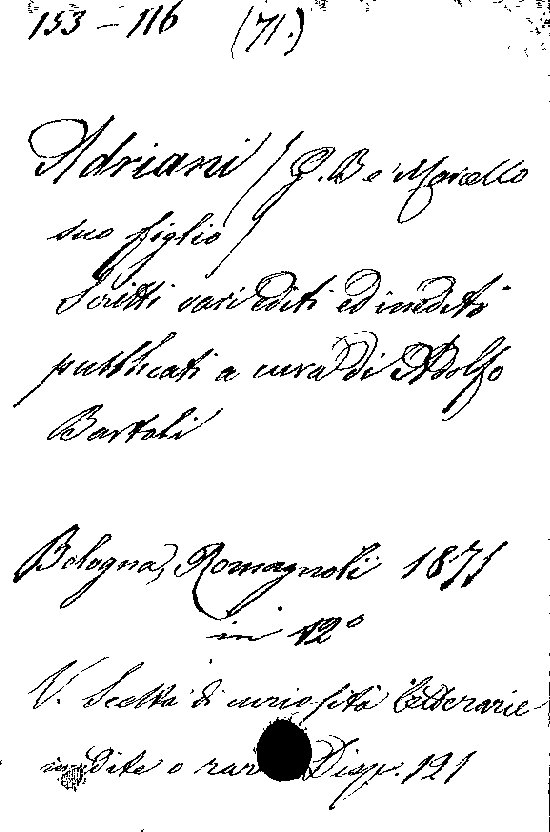 153 – 116 (71.)
Adriani / G. B e Marcello
suo figlio /
Scritti vari editi ed inediti
pubblicati a cura di Adolfo
Bartoli
Bologna, Romagnoli 1871
in 12°
V. Scelta di curiosità letterarie
inedite o rar Disp. 121